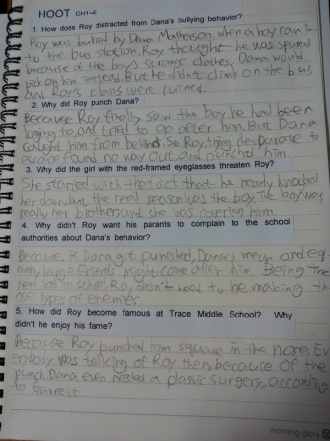 HOOT CH1~6
1. How does Roy distracted from Dana's bullying behavior?
Roy was bullied by Dana Matherson, when a boy ran in
to the bus station. Roy thought he was spared
because of the boy's strange clothes, Dana would
pick on him instead. But he didn't climb on the bus,
and Roy's plans were ruined.
2. Why did Roy punch Dana?
Because Roy finally saw the boy he had been
loging to, and tried to go after him. But Dana
caught him from behind. So Roy, trying desparate to
escape found no way out, and punched him.
3. Why did the girl with the red-framed eyeglasses threaten Roy?
She started with the fact that he nearly knocked
her down, but the real reason was the boy. The boy was
really her brother and she was covering him.
4. Why didn't Roy want his parants to complain to the school
authorities about Dana's behavior?
Because, if Dana got punished, Dana's mean and eq
ually large friends might come after him. Being the
new kid in school, Roy don't need to be making th
ose types of enemies.
5. How did Roy become famous at Trace Middle School? Why
didn't he enjoy his fame?
Because Roy punched him square in the nose. Ev
erybody was talking of Roy then, because of the
punch. Dana even needed a plastic surgery, according
to Garrett.
morning glory